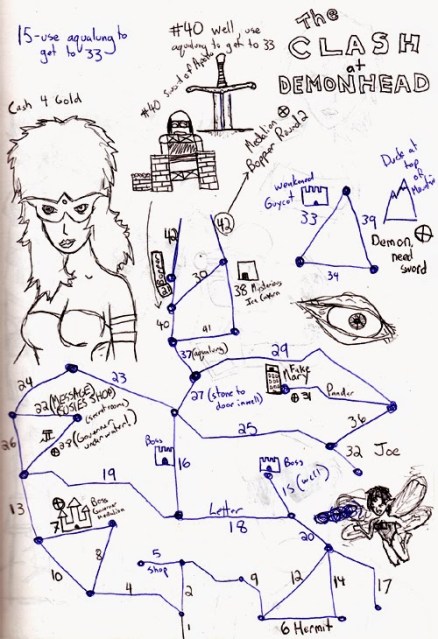 15-use aqualung to
get to 33
#40 well use
aqualung to get to 33
The
CLASH
at
DEMONHEAD
#40 Sword of Apollo
Cash 4 Gold
Medalion
Bopper Round 2
Duck at
top
of
Weakened
Guycot
33
39
34
Demon,
need
sword
42
42
Bopper
39
38 Mysterious
40
41
37 (aqualung)
29
24
23
22 (MESSAGE)
SUSIE'S SHOP)
(secret room)
(Governor
underwater!)
26
27 (stone to
door in well)
Fake
Mary
31
Powder
36
25
32 Joe
Boss
16
Boss
15 (well)
19
13
Letter
18
Boss
Governor
Medalion
7
8
20
10
5
Shop
4
2
1
9
12
14
17
6 Hermit